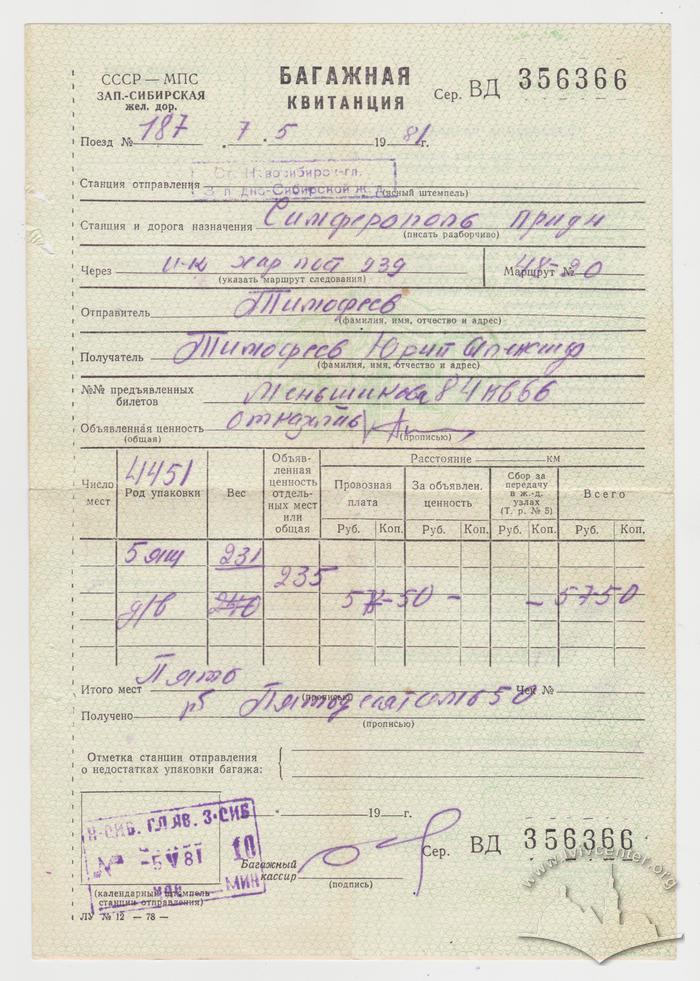 СССР — МПС
ЗАП.-СИБИРСКАЯ
жел. дор.
БАГАЖНАЯ
КВИТАНЦИЯ
Сер. ВД 356366
Поезд № 187 7 5 1981 г.
Станция отправления Ст. Новосибирск-гл.
(ясный штемпель)
Станция и дорога назначения Симферополь Придн
(писать разборчиво)
Через хар 939 Маршрут № 48-20
(указать маршрут следования)
Отправитель Тимофеев
(фамилия, имя, отчество и адрес)
Получатель Тимофеев Юрий
(фамилия, имя, отчество и адрес)
№№ предъявленных билетов Меньшикова 84 кв 66
Объявленная ценность
(общая) (прописью)
Число мест
4451
Род упаковки
Вес
Объявленная ценность отдельных мест или общая
Расстояние км
Провозная плата
За объявлен. ценность
Сбор за передачу в ж.-д. узлах (Т. р. № 5)
Всего
Руб. Коп. Руб. Коп. Руб. Коп. Руб. Коп.
5 ящ 231
235
д/в 240 57-50 - - 57 50
Итого мест Пять
(прописью) Чек №
Получено рб Пятьдесят семь 50
(прописью)
Отметка станции отправления
о недостатках упаковки багажа:
19 г.
Н-СИБ. ГЛАВ. З-СИБ
№ -5 V 81 10
МИН
(календарный штемпель
станции отправления)
Багажный
кассир
(подпись)
Сер. ВД 356366
ЛУ № 12 — 78 —
www.lvivcenter.org